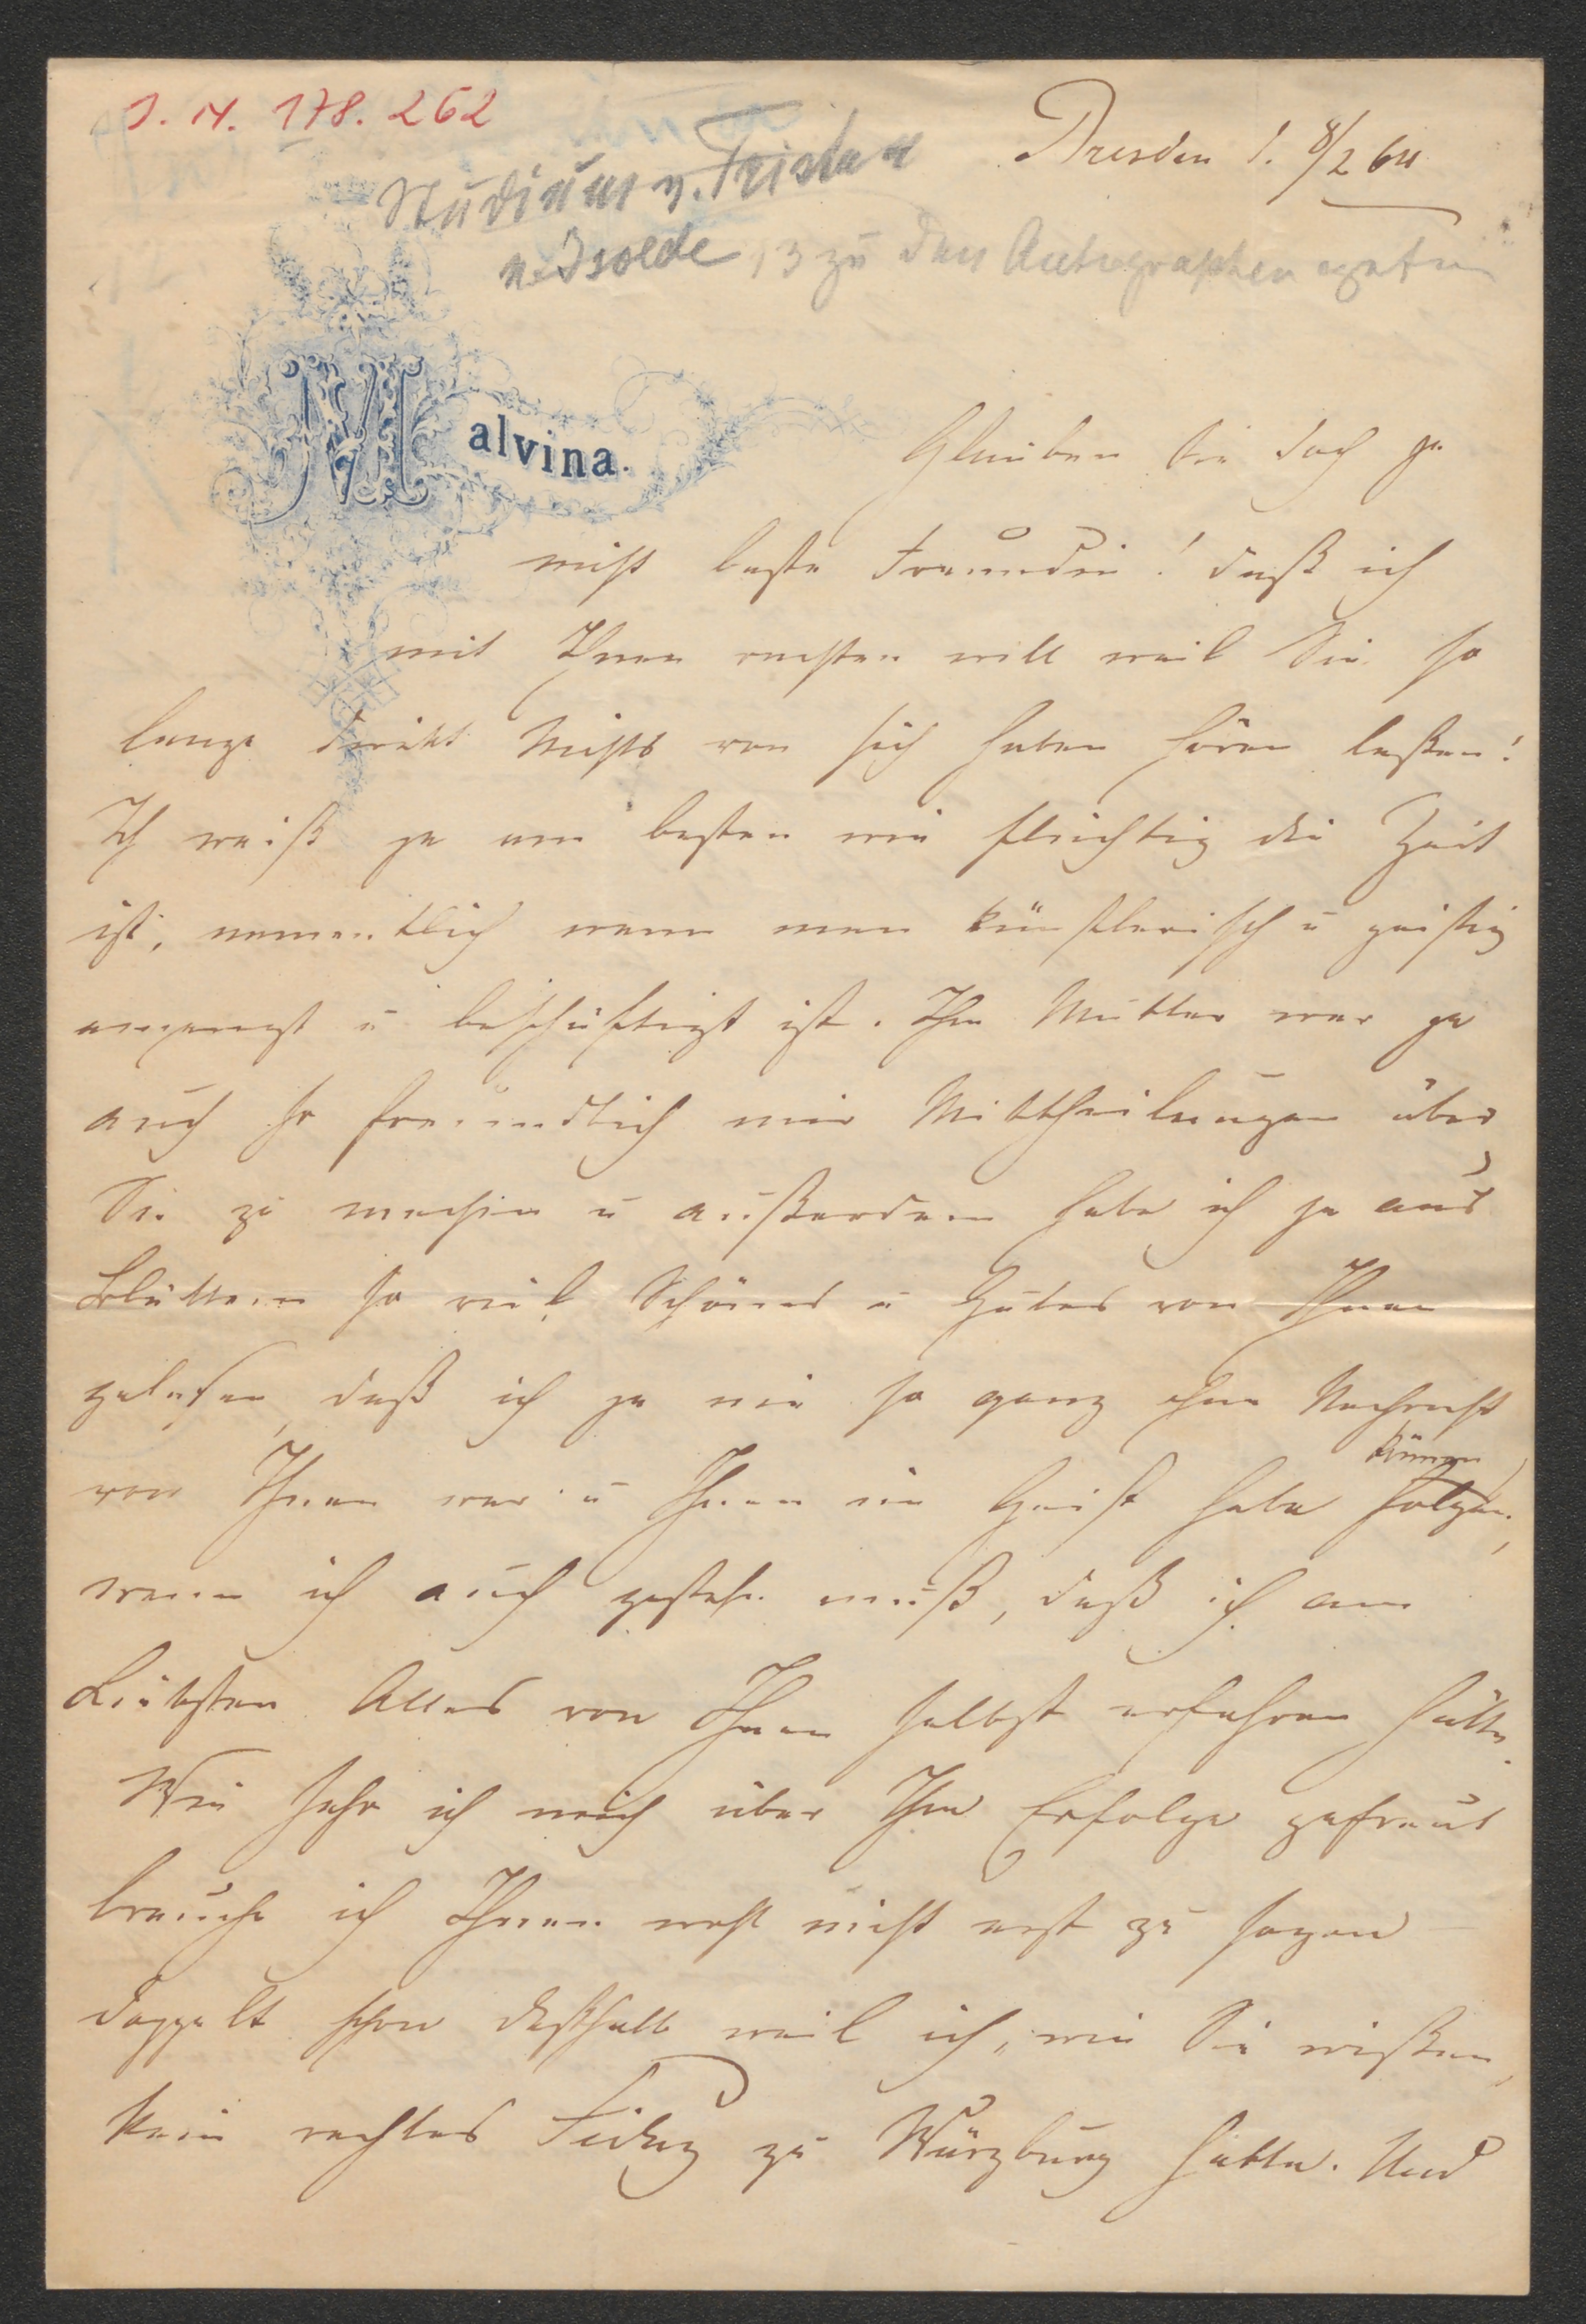 I. N. 178.262
Dresden d. 8/2 64
Studium v. Tristan
u. Isolde 13 zu den Autographen
Malvina.
Glauben Sie doch ja
nicht beste Freundin! daß ich
mit Ihnen rechten will weil Sie so
lange direkt Nichts von sich haben hören laßen!
Ich weiß ja am besten wie flüchtig die Zeit
ist, namentlich wenn man künstlerisch u geistig
angeregt u beschäftigt ist. Ihre Mutter war ja
auch so freundlich mir Mittheilungen über
Sie zu machen u außerdem habe ich ja aus
Blättern so viel Schönes u Gutes von Ihnen
gelesen, daß ich ja nie so ganz ohne Nachricht
von Ihnen war u Ihnen im Geist habe folgen können,
wenn ich auch gestehn muß, daß ich am
Liebsten Alles von Ihnen selbst erfahren hätte.
Wie sehr ich mich über Ihre Erfolge gefreut
brauche ich Ihnen wohl nicht erst zu sagen –
doppelt schon deßhalb weil ich, wie Sie wißen,
kein rechtes Fiduz zu Würzburg hatte. Und